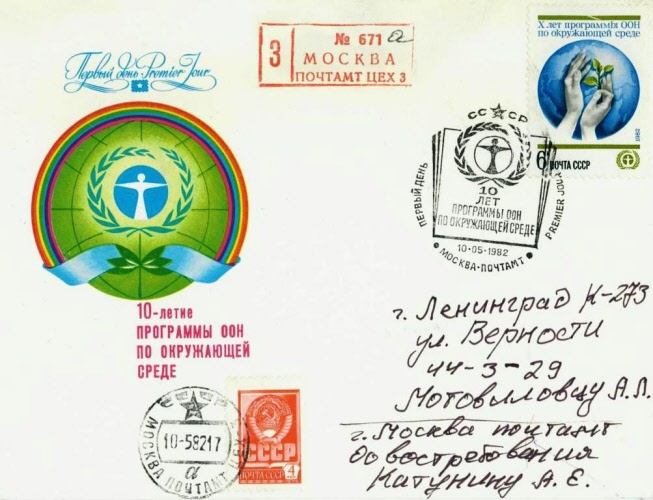 Первый день Premier Jour
3
№ 671
МОСКВА
ПОЧТАМТ ЦЕХ 3
X лет программы ООН
по окружающей среде
1982
6 ПОЧТА СССР
СССР
ПЕРВЫЙ ДЕНЬ
PREMIER JOUR
10
ЛЕТ
ПРОГРАММЫ ООН
ПО ОКРУЖАЮЩЕЙ СРЕДЕ
10-05-1982
МОСКВА-ПОЧТАМТ
10-летие
ПРОГРАММЫ ООН
ПО ОКРУЖАЮЩЕЙ
СРЕДЕ
г. Ленинград К-273
ул. Верности
44-3-29
Мотовиловцу А.Л.
г. Москва почтамт
довостребования
Катунину А. Е.
СССР
МОСКВА
ПОЧТАМТ
10-58217
а
СССР
ПОЧТА СССР 4